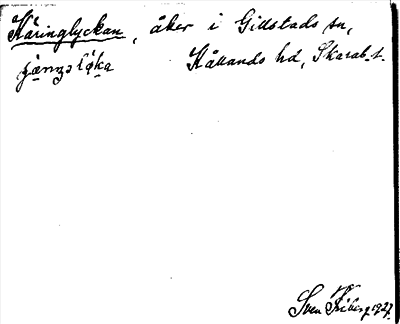 Käringlyckan, åker i Gillstads sn,
Kållands hd, Skarab. l.
Sven Friberg 1927.